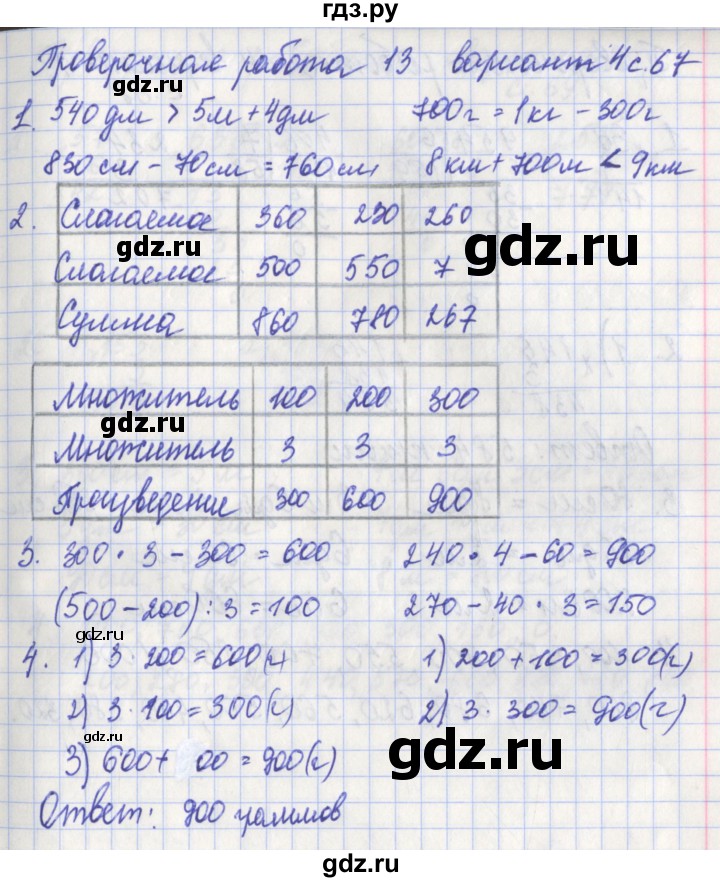 гдз.ру
Проверочная работа 13 вариант 4 с. 67
1. 540 дм > 5м + 4дм 700г = 1кг - 300г
830 см - 70 см = 760 см 8 км + 700м < 9км
gdz.ru
2. Слагаемое 360 230 260
gdz.ru gdz.ru
Слагаемое 500 550 7
Сумма 860 780 267
Множитель 100 200 300
Множитель 3 3 3
gdz.ru
Произведение 300 600 900
3. 300 · 3 - 300 = 600 240 · 4 - 60 = 900
(500 - 200) : 3 = 100 270 - 40 · 3 = 150
gdz.ru
4. 1) 3 · 200 = 600(г) 1) 200 + 100 = 300(г)
2) 3 · 100 = 300(г) 2) 3 · 300 = 900(г)
gdz.ru
3) 600 + 00 = 900(г)
gdz.ru
Ответ: 900 граммов
gdz.ru
gdz.ru